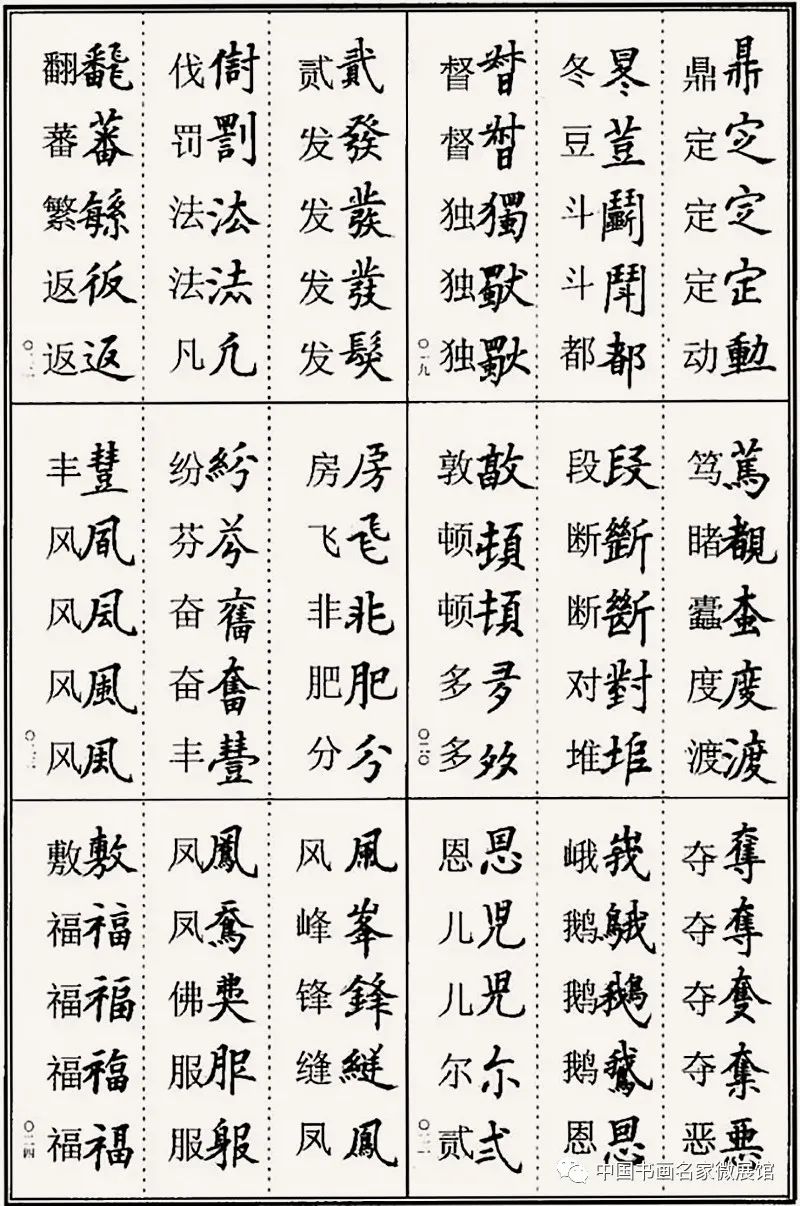 鼎鼎
定㝎
定㝎
定定
动動
冬冬
豆荳
斗鬭
斗鬥
都都
督督
督督
独獨
独
独
〇一九
笃篤
睹覩
蠢
度度
渡渡
段段
断斷
断斷
对對
堆塠
敦敦
顿頓
顿頓
多多
多
〇二〇
夺奪
夺奪
夺
夺奪
恶悪
峨峩
鹅䳘
鹅鵝
鹅鵞
恩恩
恩恩
儿児
儿児
尔尓
贰弍
〇二一
贰貳
发發
发發
发發
发髮
伐
罚罰
法法
法法
凡凡
翻飜
蕃蕃
繁
返彶
返返
〇二二
房房
飞飛
非非
肥肥
分分
纷紛
芬芬
奋奮
奋奮
丰豐
丰豐
风凬
风凨
风風
风風
〇二三
风風
峰峯
锋鋒
缝縫
凤鳳
凤鳳
凤
佛
服服
服
敷敷
福福
福福
福福
福福
〇二四
中国书画名家微展馆